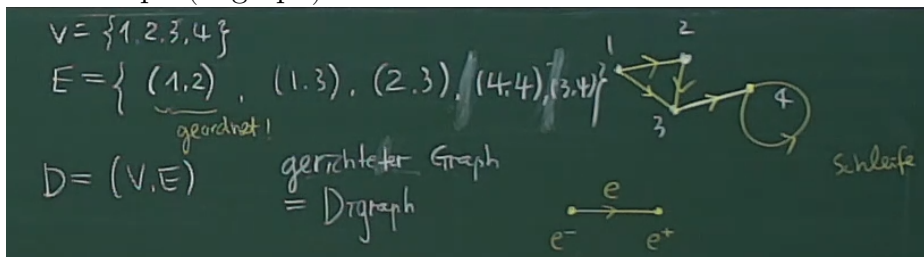 V = {1.2.3,4}
E = { (1,2) , (1.3), (2.3), (4,4), (3,4)}
geordnet!
1
2
3
4
D = (V,E)
gerichteter Graph
= Digraph
Schleife
e
e⁻
e⁺